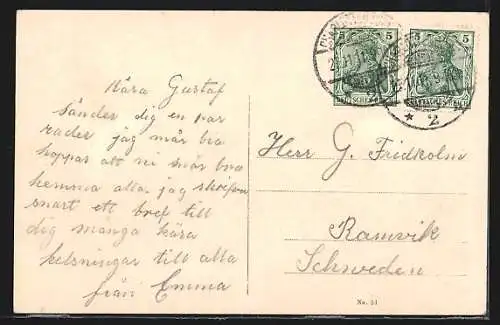 Kära Gustaf
sänder dig en par
rader jag mår bra
hoppas att ni mår bra
hemma alla. jag skrifva
snart ett bref till
dig många kära
helsningar till alla
från Emma
5 5
5 5
DEUTSCHES REICH
* 2
Herr G. Fridholm
Ramvik
Schweden
No. 51